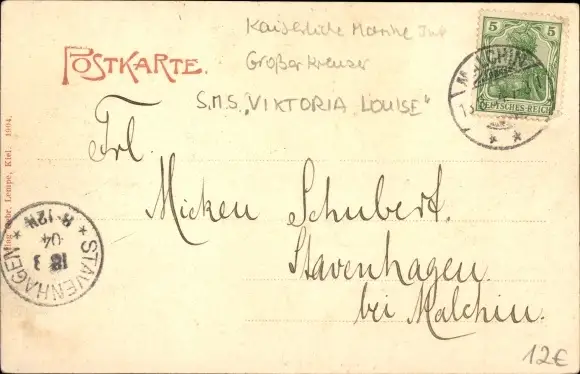 Kaiserliche Marine
Großer Kreuzer
S.M.S. „VIKTORIA LOUISE"
POSTKARTE.
5 5
DEUTSCHES REICH
MALCHIN
Frl.
Micken Schubert.
Stavenhagen.
bei Malchin.
STAVENHAGEN
18 3
04
8-12V
Lempe, Kiel. 1904.
12€